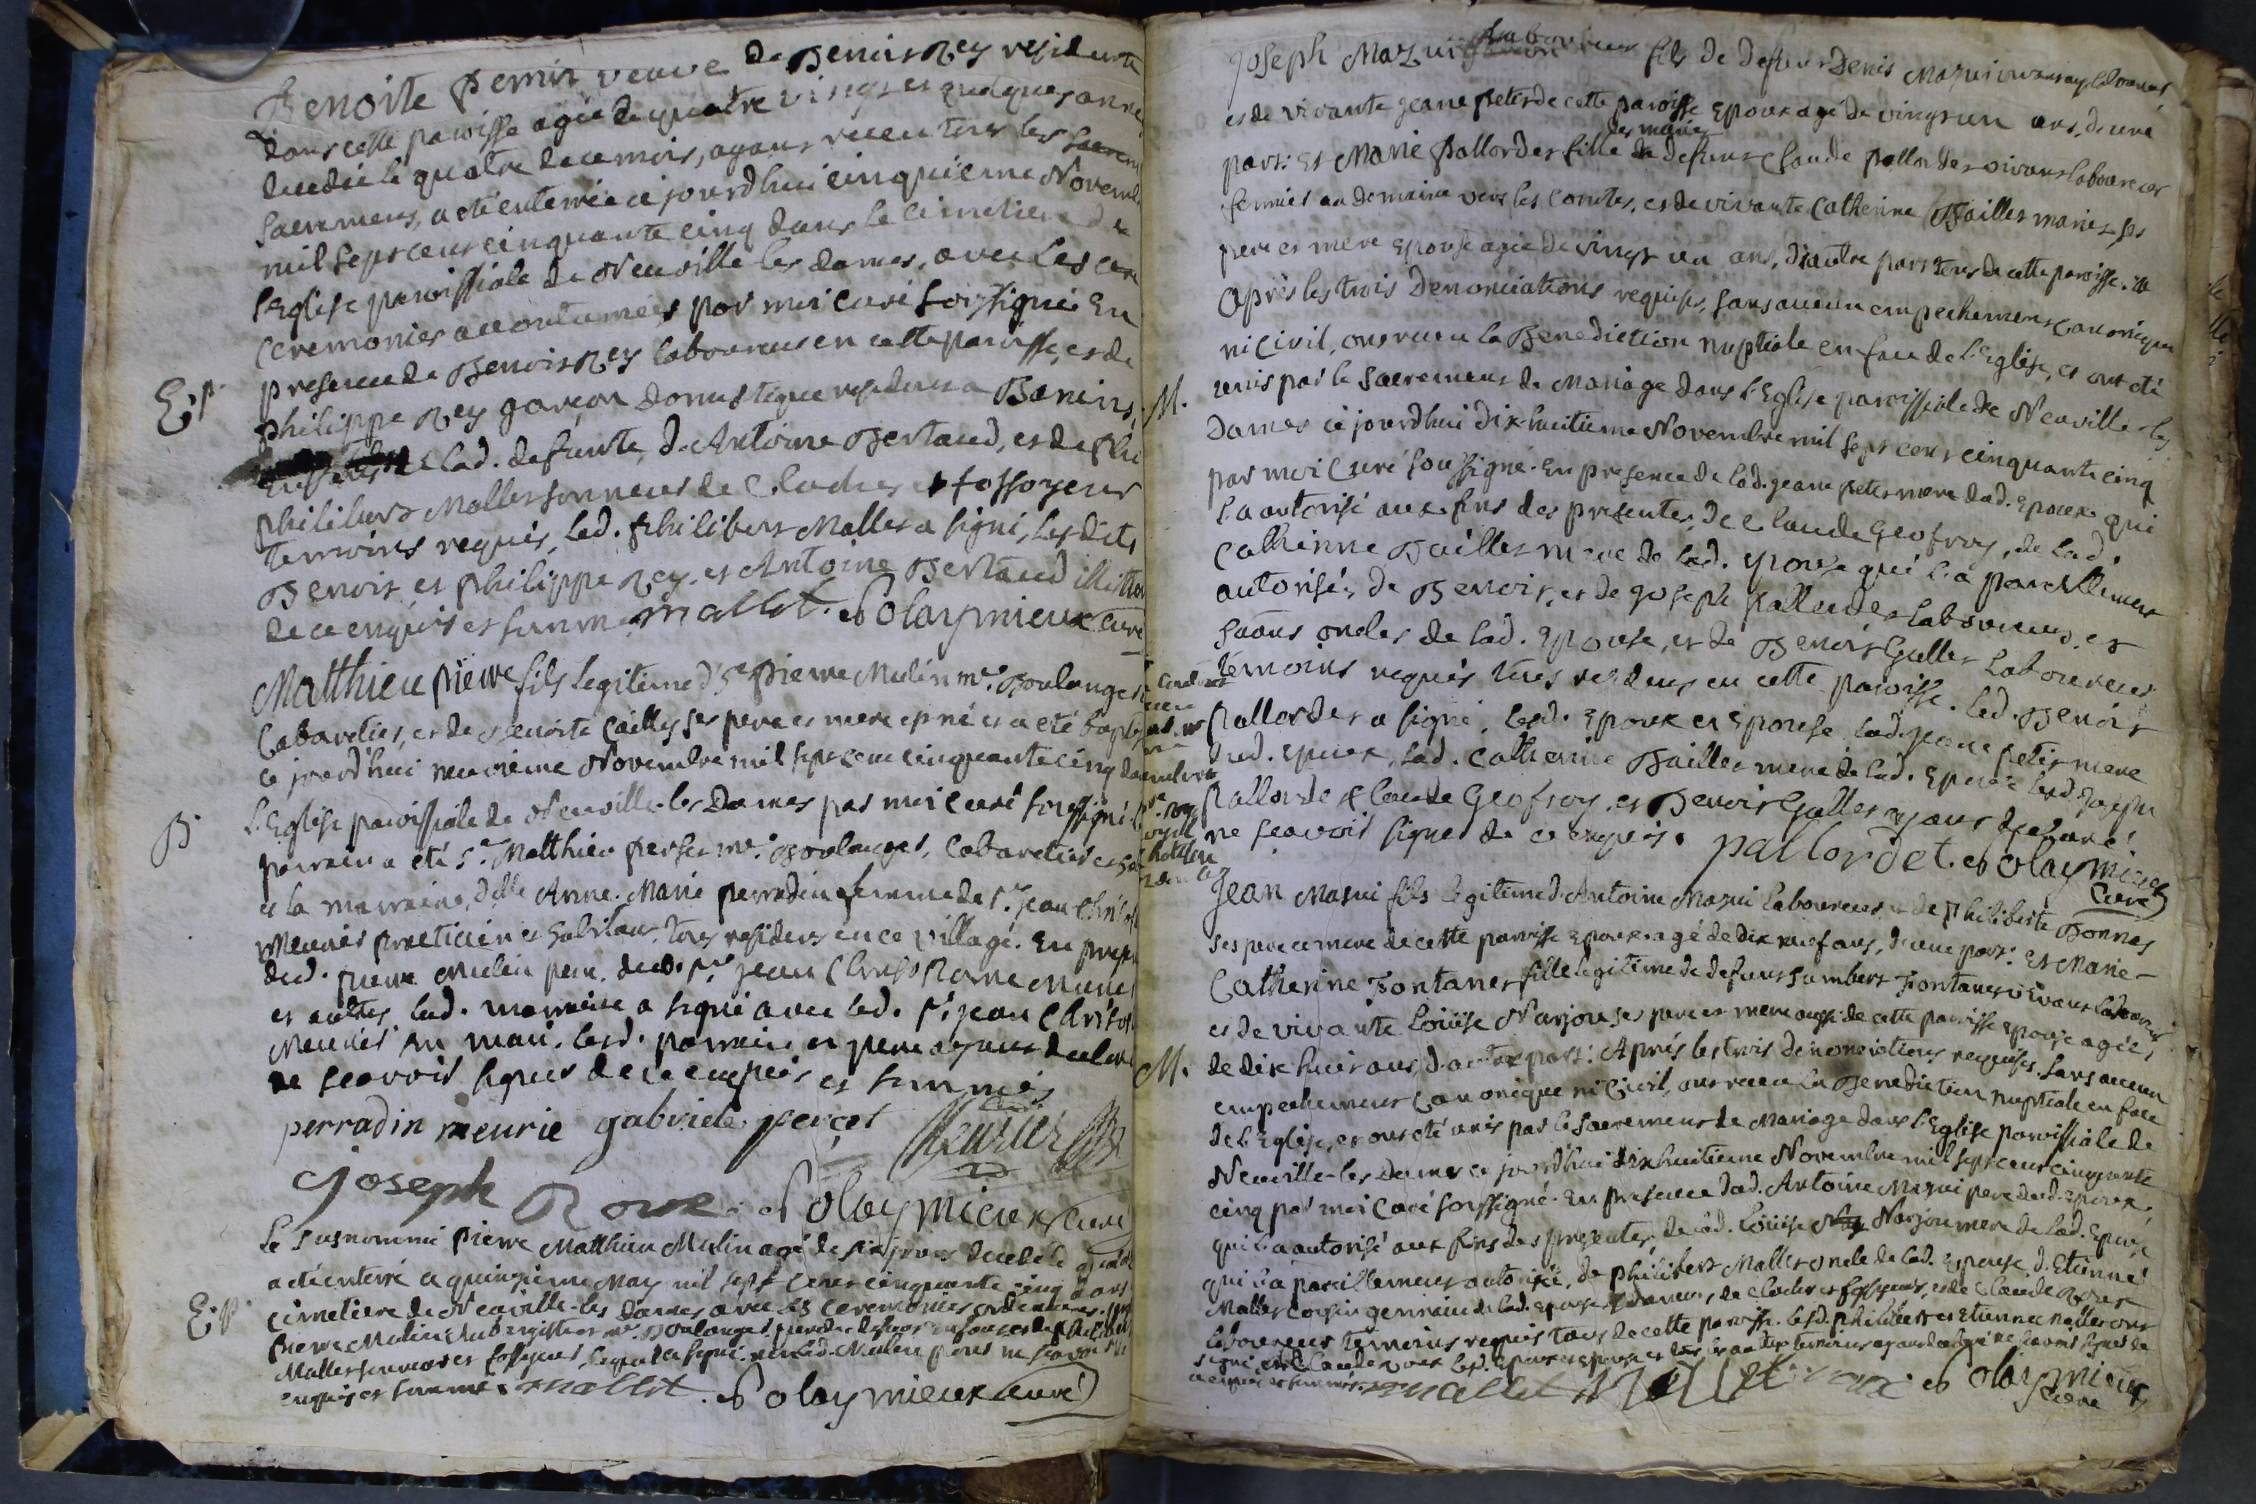 Benoite Perrin veuve de Benoist Rey residente
dans cette paroisse agée de quatre vingt et quelques anné
decedée le quatre de ce mois, ayant receu tous les
sacremens, a été enterrée ce jourdhui cinquieme Novem
mil sept cent cinquante cinq dans le cimetiere de
l'Eglise paroissiale de Neuville les dames, avec les
ceremonies accoutumées par moi curé soussigné En
presence de Benoist Rey laboureur en cette paroisse, et de
E.p.
philippe Rey garçon domestique residant a Baneins,
de lad. defunte, d'Antoine Bertaud, et de Phi
philibert Mallet sonneur de cloches et fossoyeur
temoins requis, led. philibert Mallet a signé, lesdits
Benoit, et philippe Rey, et Antoine Bertaud illitter
de ce enquis et sommés mallet. Polaymieux curé
Matthieu pierre fils legitime d'Sr. Pierre Mulin me. Boulanger
Cabaretier, et de Benoite Cailly ses pere et mere est né et a eté baptisé
ce jourdhui neuvieme Novembre mil sept cent cinquante cinq da
B.
l'Eglise paroissiale de Neuville les Dames par moi curé soussigné. le
parrain a eté Sr. Matthieu me. Boulanger, Cabaretier
et la marraine, dlle Anne Marie perradin femme de Sr. jean
Meurier practicien et habitans tous residens en ce village. En prese
dud. pierre Mulin pere. dud. Sr. jean Meurier
et aultres, lad. marraine a signé avec led. Sr. jean
Meurier son mari. lesd. parrain et pere ayant declaré
ne scavoir signer de ce enquis et sommés
perradin meurie gabriele perçet Meurier
joseph Roux. Polaymieux curé
le susnommé pierre Matthieu Mulin agé de six jours decedé
a été enterré ce quinzieme May mil sept cent cinquante cinq dans
E.p.
cimetiere de Neuville les Dames avec les ceremonies ordinaires.
pierre Mulin Aubergiste et me. Boulanger pere du defunt
Mallet sonneur et fossoyeur, lequel a signé. led. Mulin pere ne scavoir
enquis et sommé. mallet. Polaymieux curé
Joseph Mazui laboureur fils de defunt Denis Mazui vivant laboureur,
et de vivante jeane peter de cette paroisse Epoux agé de vingt un ans, d'une
part: Et Marie Pallordet fille de defunt Claude pallordet vivant laboureur
fermier au domaine vers les Comtes, et de vivante Catherine Baillet mariés ses
pere et mere Epouse agée de vingt un ans, d'autre part tous de cette paroisse.
Après les trois Denonciations requises, sans aucun empechement canonique
ni Civil, ont receu la Benediction nuptiale en face de l'Eglise, et ont été
M.
unis par le sacrement de Mariage dans l'Eglise paroissiale de Neuville-les
Dames ce jourdhui dix-huitieme Novembre mil sept cent cinquante cinq
par moi Curé soussigné. En presence de lad. jeane peter mere dud. Epoux qui
l'a autorisé aux fins des presentes, de Claude Geofroy, de lad.
Catherine Baillet mere de lad. Epouse qui l'a pareillement
autorisée, de Benoit, et de joseph pallordet laboureurs, et
oncles de lad. Epouse, et de Benoit Gallet laboureur
temoins requis tous residens en cette paroisse. led. Benoit
Pallordet a signé. lesd. Epoux et Epouse, lad. jeane peter mere
dud. Epoux, lad. Catherine Baillet mere de lad. Epouse led. joseph
Pallordet Claude Geofroy, et Benoit Gallet ayant declaré
ne scavoir signer de ce enquis. pallordet. Polaymieux
Curé
Jean Mazui fils legitime d'Antoine Mazui laboureur, et de philiberte Bonnet
ses pere et mere de cette paroisse Epoux agé de dix neuf ans, d'une part: Et Marie-
Catherine Fontanet fille legitime de defunt humbert Fontanet vivant laboureur
et de vivante Loüise Narjou ses pere et mere aussi de cette paroisse Epouse agée
M.
de dix huit ans, d'autre part: Après les trois denonciations requises, sans aucun
empechement canonique ni Civil, ont receu la Benediction nuptiale en face
de l'Eglise, et ont été unis par le sacrement de Mariage dans l'Eglise paroissiale de
Neuville les Dames ce jourdhui dixhuitieme Novembre mil sept cent cinquante
cinq par moi Curé soussigné. En presence dud. Antoine Mazui pere dud. Epoux,
qui l'a autorisé aux fins des presentes, de lad. Loüise Narjou mere de lad. Epouse
qui l'a pareillement autorisée, de philibert Mallet oncle de lad. Epouse, d'Etienne
Mallet cousin germain de lad. Epouse, sonneur de cloches et fossoyeur, et de Claude Roux
laboureur temoins requis tous de cette paroisse. lesd. philibert et Etienne Mallet ont
signé et Claude Roux lesd. Epoux et Epouse et les autres temoins ayant declaré ne scavoir signer de
ce enquis et sommés. mallet Roux. Polaymieux
Curé